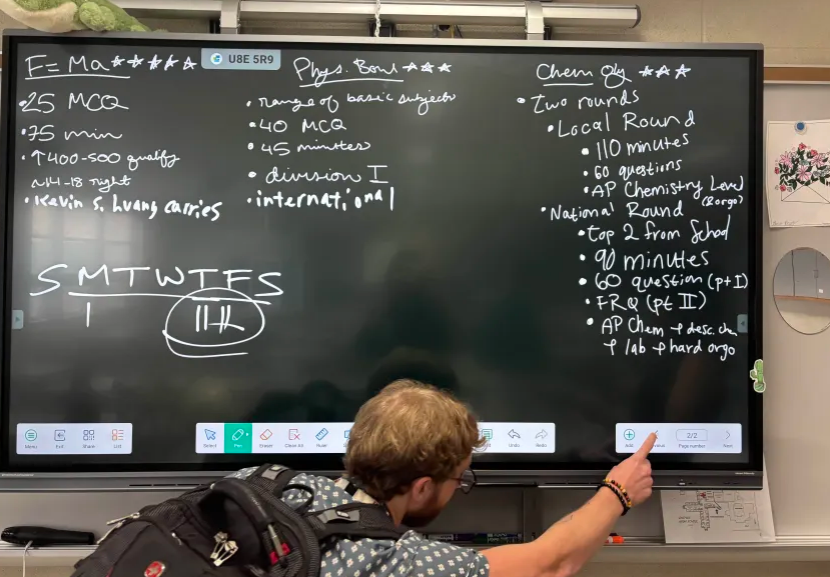 F=Ma ☆☆☆☆☆
•25 MCQ
•75 min
•↑400-500 qualify
~14-18 right
•Kevin S. Huang carries
SMTWTFS
U8E 5R9
Phys. Bowl ☆☆☆
•range of basic subjects
•40 MCQ
•45 minutes
•division I
•international
Chem Oly ☆☆☆
•two rounds
•Local Round
•110 minutes
•60 questions
•AP Chemistry Level
(& orgo)
•National Round
•top 2 from School
•90 minutes
•60 question (pt I)
•FRQ (pt II)
•AP Chem + desc. che
+ lab + hard orgo
Menu
Exit
Share
List
Select
Pen
Eraser
Clear All
Ruler
Undo
Redo
Add
2/2
Page number
Next